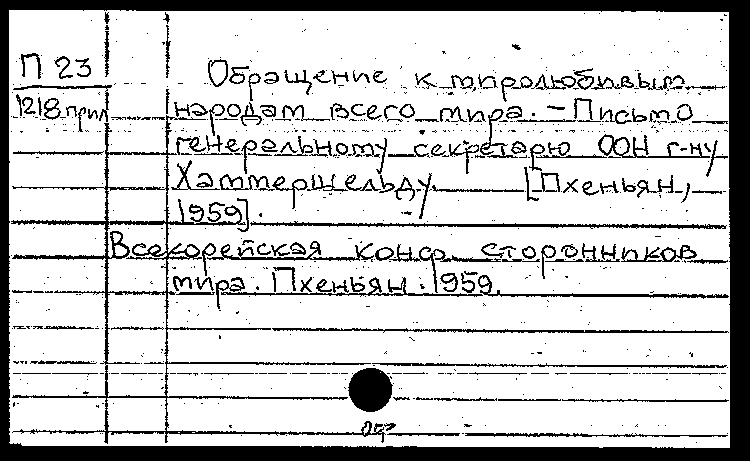 П 23
1218 прил
Обращение к миролюбивым
народам всего мира. – Письмо
генеральному секретарю ООН г-ну
Хаммершельду. [Пхеньян,
1959].
Всекорейская конф. сторонников
мира. Пхеньян. 1959.